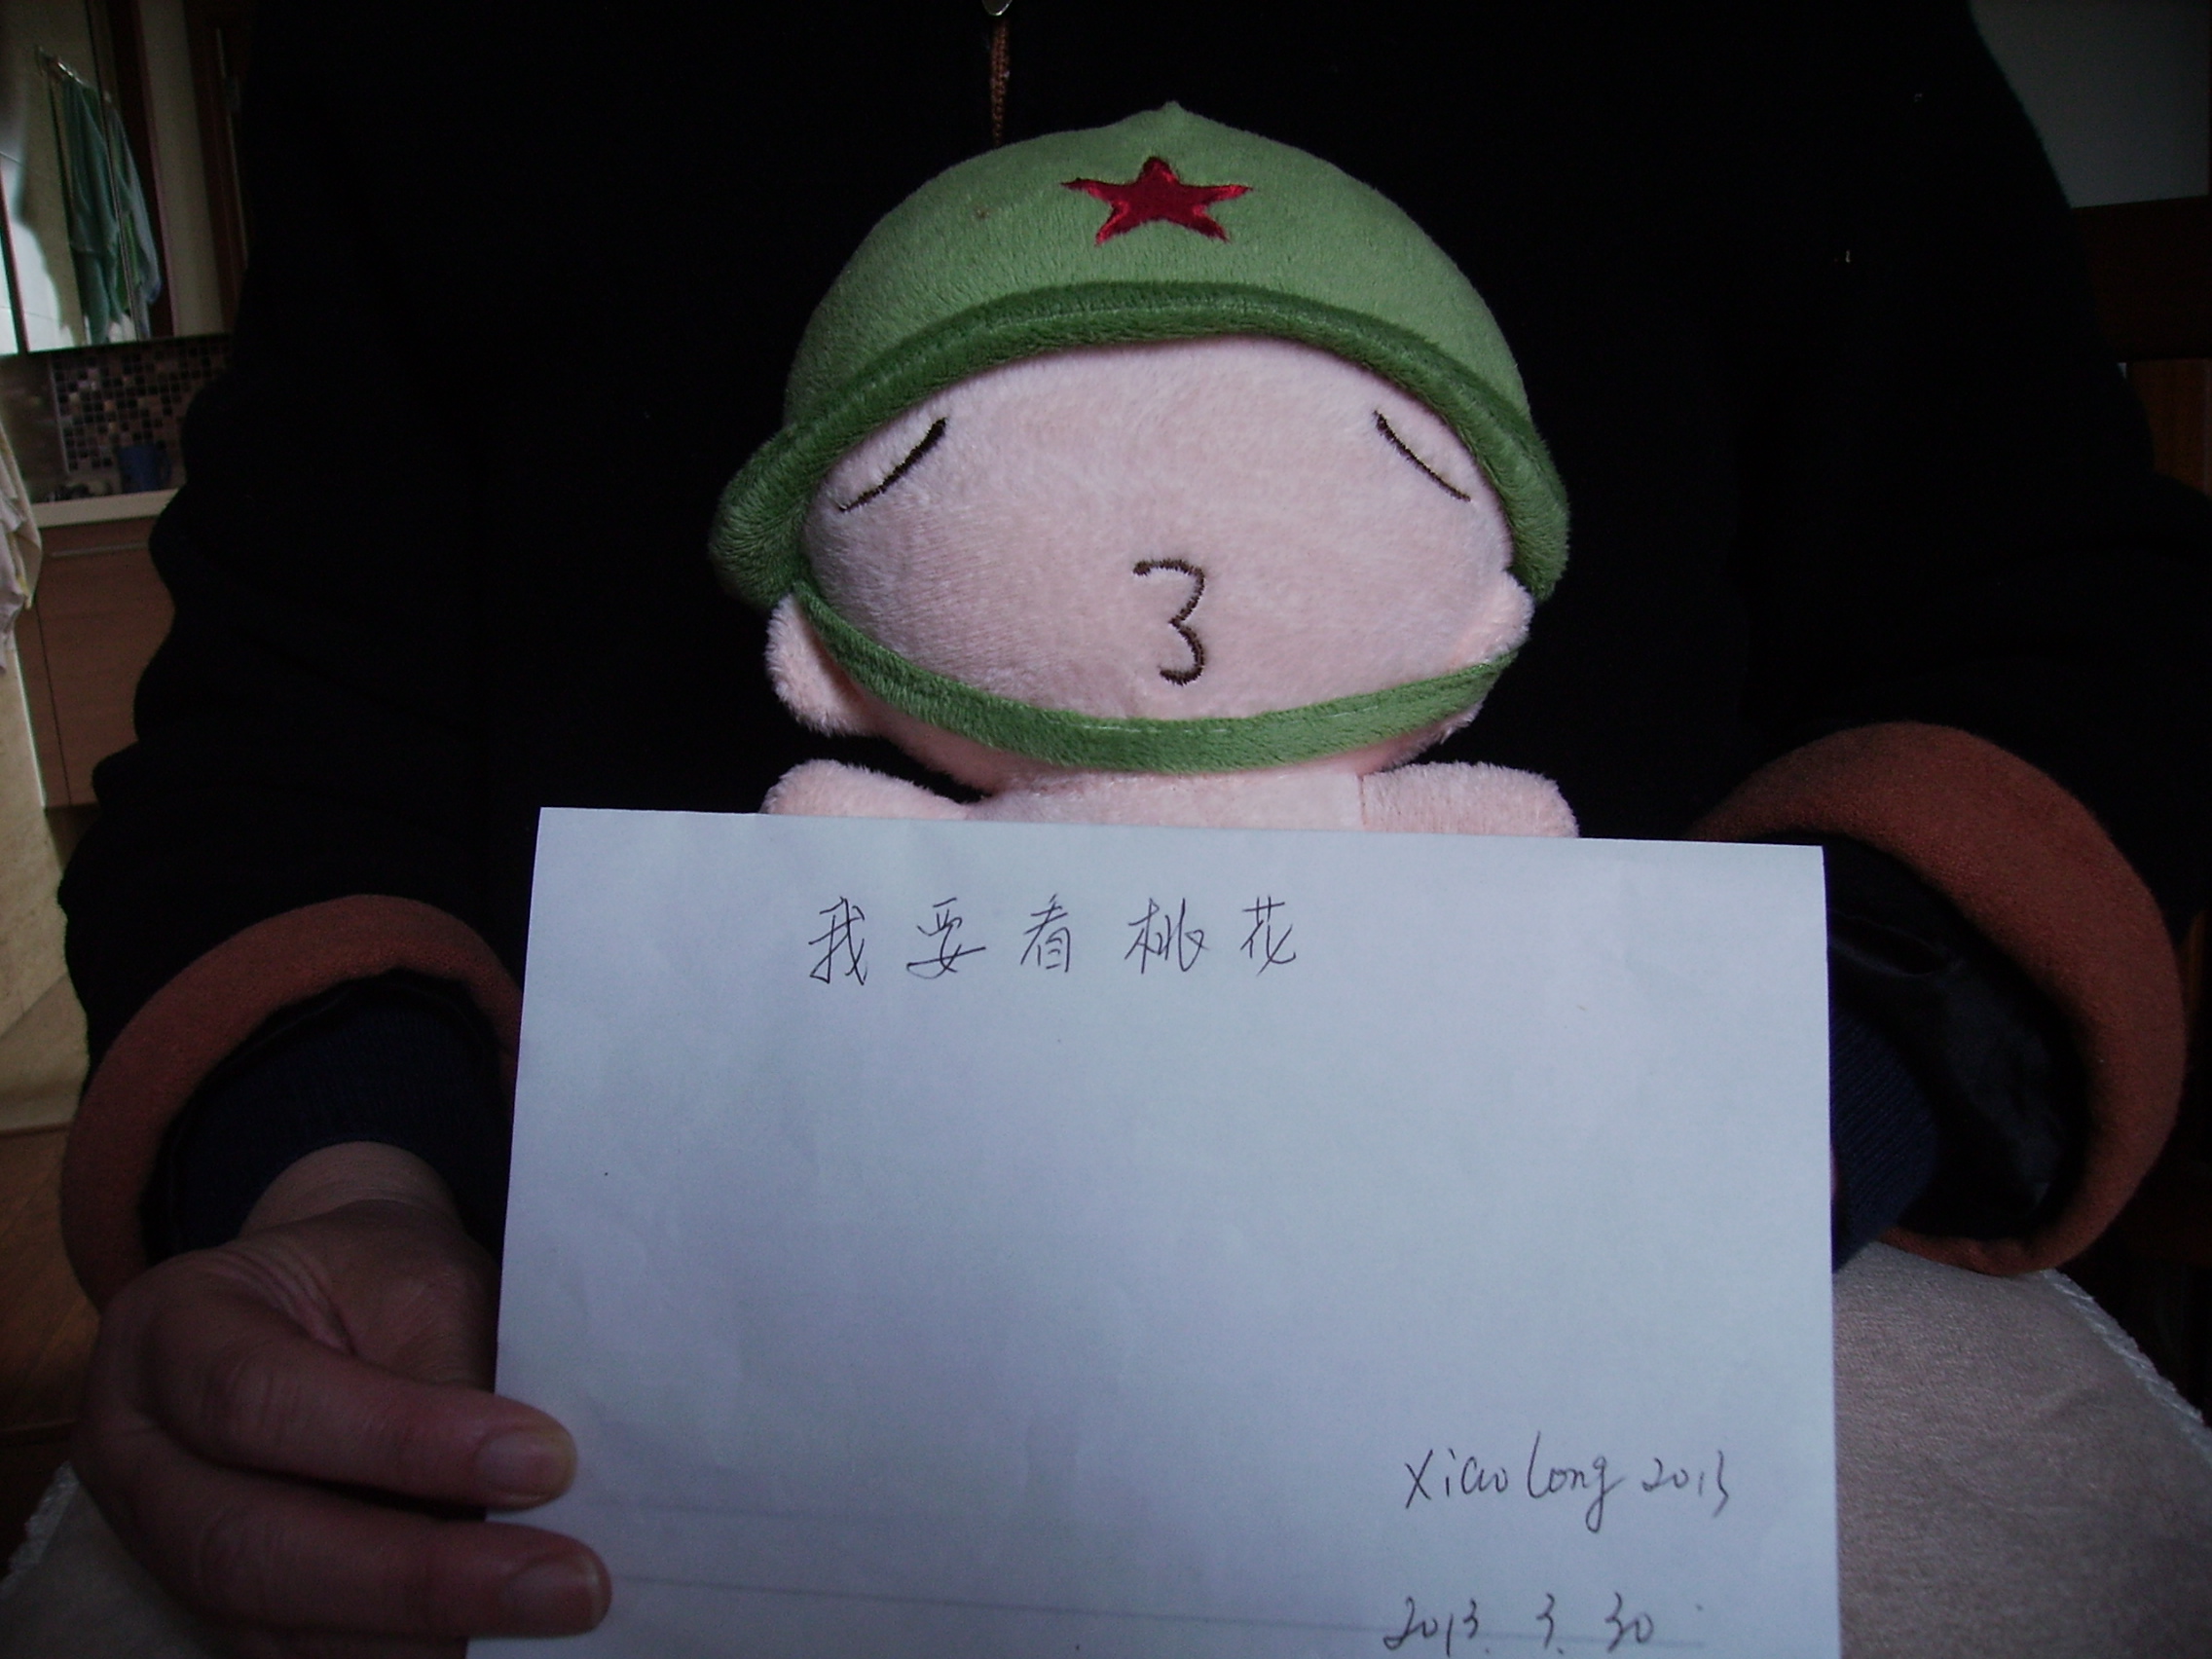 我要看桃花
xiaolong 2013
2013. 3. 30